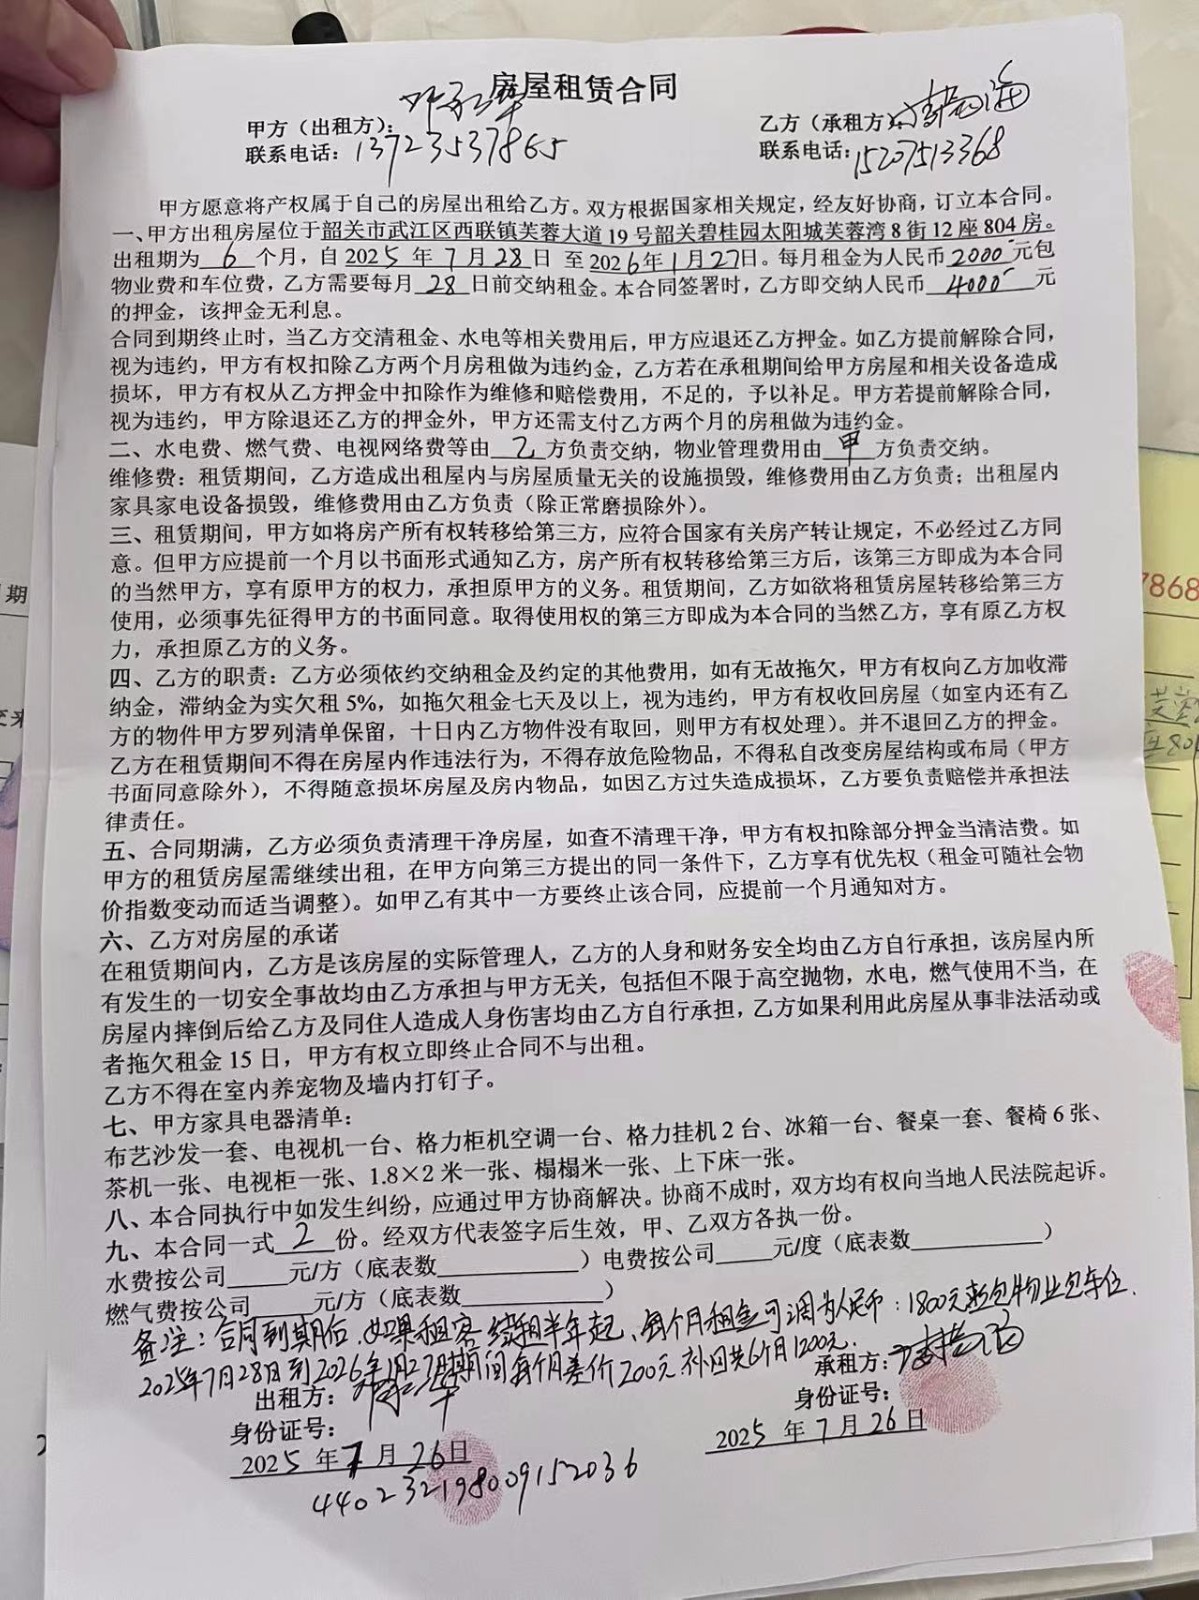 房屋租赁合同
甲方（出租方）：
乙方（承租方）：
联系电话：13723537865
联系电话：15207513368
甲方愿意将产权属于自己的房屋出租给乙方。双方根据国家相关规定，经友好协商，订立本合同。
一、甲方出租房屋位于韶关市武江区西联镇芙蓉大道19号韶关碧桂园太阳城芙蓉湾8街12座804房。
出租期为 6 个月，自 2025 年 7 月 28 日 至 2026 年 1 月 27 日。每月租金为人民币 2000 元包
物业费和车位费，乙方需要每月 28 日前交纳租金。本合同签署时，乙方即交纳人民币 4000 元
的押金，该押金无利息。
合同到期终止时，当乙方交清租金、水电等相关费用后，甲方应退还乙方押金。如乙方提前解除合同，
视为违约，甲方有权扣除乙方两个月房租做为违约金，乙方若在承租期间给甲方房屋和相关设备造成
损坏，甲方有权从乙方押金中扣除作为维修和赔偿费用，不足的，予以补足。甲方若提前解除合同，
视为违约，甲方除退还乙方的押金外，甲方还需支付乙方两个月的房租做为违约金。
二、水电费、燃气费、电视网络费等由 乙 方负责交纳，物业管理费用由 甲 方负责交纳。
维修费：租赁期间，乙方造成出租屋内与房屋质量无关的设施损毁，维修费用由乙方负责；出租屋内
家具家电设备损毁，维修费用由乙方负责（除正常磨损除外）。
三、租赁期间，甲方如将房产所有权转移给第三方，应符合国家有关房产转让规定，不必经过乙方同
意。但甲方应提前一个月以书面形式通知乙方，房产所有权转移给第三方后，该第三方即成为本合同
的当然甲方，享有原甲方的权力，承担原甲方的义务。租赁期间，乙方如欲将租赁房屋转移给第三方
使用，必须事先征得甲方的书面同意。取得使用权的第三方即成为本合同的当然乙方，享有原乙方权
力，承担原乙方的义务。
四、乙方的职责：乙方必须依约交纳租金及约定的其他费用，如有无故拖欠，甲方有权向乙方加收滞
纳金，滞纳金为实欠租5%，如拖欠租金七天及以上，视为违约，甲方有权收回房屋（如室内还有乙
方的物件甲方罗列清单保留，十日内乙方物件没有取回，则甲方有权处理）。并不退回乙方的押金。
乙方在租赁期间不得在房屋内作违法行为，不得存放危险物品，不得私自改变房屋结构或布局（甲方
书面同意除外），不得随意损坏房屋及房内物品，如因乙方过失造成损坏，乙方要负责赔偿并承担法
律责任。
五、合同期满，乙方必须负责清理干净房屋，如查不清理干净，甲方有权扣除部分押金当清洁费。如
甲方的租赁房屋需继续出租，在甲方向第三方提出的同一条件下，乙方享有优先权（租金可随社会物
价指数变动而适当调整）。如甲乙有其中一方要终止该合同，应提前一个月通知对方。
六、乙方对房屋的承诺
在租赁期间内，乙方是该房屋的实际管理人，乙方的人身和财务安全均由乙方自行承担，该房屋内所
有发生的一切安全事故均由乙方承担与甲方无关，包括但不限于高空抛物，水电，燃气使用不当，在
房屋内摔倒后给乙方及同住人造成人身伤害均由乙方自行承担，乙方如果利用此房屋从事非法活动或
者拖欠租金15日，甲方有权立即终止合同不与出租。
乙方不得在室内养宠物及墙内打钉子。
七、甲方家具电器清单：
布艺沙发一套、电视机一台、格力柜机空调一台、格力挂机2台、冰箱一台、餐桌一套、餐椅6张、
茶机一张、电视柜一张、1.8×2米一张、榻榻米一张、上下床一张。
八、本合同执行中如发生纠纷，应通过甲方协商解决。协商不成时，双方均有权向当地人民法院起诉。
九、本合同一式 2 份。经双方代表签字后生效，甲、乙双方各执一份。
水费按公司_____元/方（底表数__________）电费按公司_____元/度（底表数__________）
燃气费按公司_____元/方（底表数__________）
备注：合同到期后，如果租客续租半年起、每个月租金可调为人民币：1800元 包物业包车位．
2025年7月28日到2026年1月27日期间每个月差价200元．补回共6个月1200元．
出租方：
承租方：
身份证号：
身份证号：
2025 年 7 月 26 日
2025 年 7 月 26 日
440232198009152036
7868